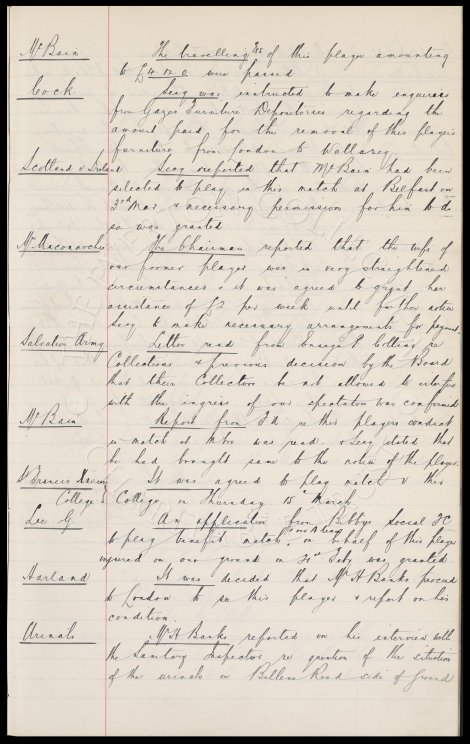 McBain The travelling Exs of this player amounting
to £4.12.0 were passed
Cock Secy was instructed to make enquiries
from Gazes Furniture Depositories regarding the
amount paid for the removal of this players
furniture from London to Wallasey
Scotland v Ireland Secy reported that McBain had been
selected to play in this match at Belfast on
3rd Mar & necessary permission for him to do
so was granted
Mrs Maconnachie The Chairman reported that the wife of
our former player was in very straightened
circumstances & it was agreed to grant her
assistance of £2 per week until further notice
Secy to make necessary arrangements for payment.
Salvation Army Letter read from Ensign P Collins re
Collections & previous decision by the Board
that their Collectors be not allowed to interfere
with the ingress of our spectators was confirmed
McBain Report from F.A. re this players conduct
in match at was read. & Secy stated that
he had brought same to the notice of the player.
St Francis Xaviers It was agreed to play match v this
College College on Thursday 15th March
Lee G An application from Bibbys Social FC
to play benefit match on behalf of this player
injured on our ground on 21st Feby was granted.
Harland It was decided that Mr H Banks proceed
to London to see this player & report on his
condition.
Urinals Mr H Banks reported on his interview with
the Sanitary Inspector re question of the situation
of the urinals on Bullens Road side of ground